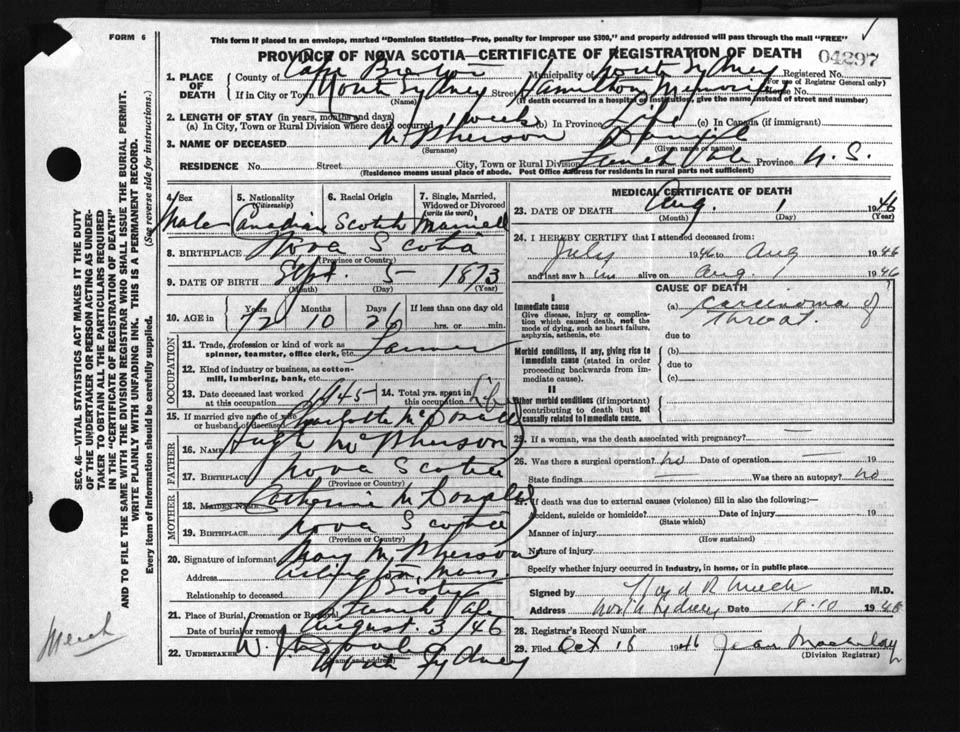 FORM 6
This form if placed in an envelope, marked "Dominion Statistics—Free, penalty for improper use $300," and properly addressed will pass through the mail "FREE"
PROVINCE OF NOVA SCOTIA—CERTIFICATE OF REGISTRATION OF DEATH
04297
1. PLACE OF DEATH County of Cape Breton Municipality of North Sydney Registered No.
(For use of Registrar General only)
If in City or Town North Sydney Street Hamilton Memorial House No.
(Name) (If death occurred in a hospital or institution, give the name instead of street and number)
2. LENGTH OF STAY (in years, months and days)
(a) In City, Town or Rural Division where death occurred 1 week (b) In Province Life (c) In Canada (if immigrant)
3. NAME OF DECEASED McPherson Daniel
(Surname) (Given name or names)
RESIDENCE No. Street City, Town or Rural Division French Vale Province N.S.
(Residence means usual place of abode. Post Office Address for residents in rural parts not sufficient)
4. Sex 5. Nationality (Citizenship) 6. Racial Origin 7. Single, Married, Widowed or Divorced (write the word)
Male Canadian Scotch Married
8. BIRTHPLACE Nova Scotia
(Province or Country)
9. DATE OF BIRTH Sept. 5 1873
(Month) (Day) (Year)
10. AGE in Years Months Days If less than one day old
72 10 26 hrs. or min.
OCCUPATION
11. Trade, profession or kind of work as spinner, teamster, office clerk, etc. Farmer
12. Kind of industry or business, as cotton-mill, lumbering, bank, etc.
13. Date deceased last worked at this occupation 1945 14. Total yrs. spent in this occupation Life
15. If married give name of wife or husband of deceased
FATHER
16. NAME Hugh McPherson
17. BIRTHPLACE Nova Scotia
(Province or Country)
MOTHER
18. MAIDEN NAME
19. BIRTHPLACE Nova Scotia
(Province or Country)
20. Signature of informant Mary McPherson
Address Arlington, Mass.
Relationship to deceased Sister
21. Place of Burial, Cremation or Removal French Vale
Date of burial or removal August 3/46
22. UNDERTAKER W. J.
North Sydney
(Name and address)
MEDICAL CERTIFICATE OF DEATH
23. DATE OF DEATH Aug. 1 1946
(Month) (Day) (Year)
24. I HEREBY CERTIFY that I attended deceased from:
July 1946 to Aug 1 1946
and last saw him alive on Aug. 1 1946
CAUSE OF DEATH
I
Immediate cause
Give disease, injury or complication which caused death, not the mode of dying, such as heart failure, asphyxia, asthenia, etc.
(a) Carcinoma of throat.
due to
Morbid conditions, if any, giving rise to immediate cause (stated in order proceeding backwards from immediate cause).
(b)
due to
(c)
II
Other morbid conditions (if important) contributing to death but not causally related to immediate cause.
25. If a woman, was the death associated with pregnancy? —
26. Was there a surgical operation? no Date of operation — 19
State findings — Was there an autopsy? no
27. If death was due to external causes (violence) fill in also the following:—
Accident, suicide or homicide? Date of injury 19
(State which)
Manner of injury
(How sustained)
Nature of injury
Specify whether injury occurred in Industry, in home, or in public place
Signed by Lloyd R Meech M.D.
Address North Sydney Date 18-10 1946
28. Registrar's Record Number
29. Filed Oct 18 1946 Jean
(Division Registrar)
SEC. 46—VITAL STATISTICS ACT MAKES IT THE DUTY
OF THE UNDERTAKER OR PERSON ACTING AS UNDER-
TAKER TO OBTAIN ALL THE PARTICULARS REQUIRED
IN THE "CERTIFICATE OF REGISTRATION OF DEATH"
AND TO FILE THE SAME WITH THE DIVISION REGISTRAR WHO SHALL ISSUE THE BURIAL PERMIT.
WRITE PLAINLY WITH UNFADING INK. THIS IS A PERMANENT RECORD.
Every item of Information should be carefully supplied. (See reverse side for instructions.)
Meech